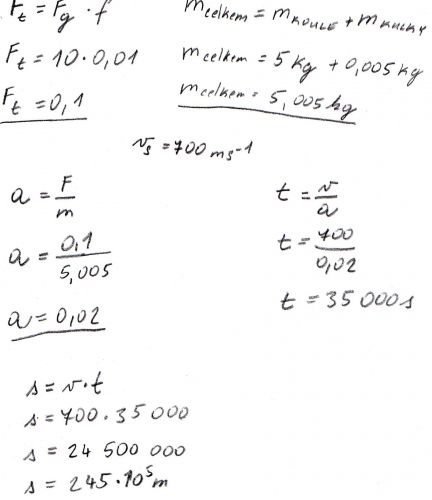 Ft = Fg · f
Ft = 10 · 0,01
Ft = 0,1
m celkem = m KOULE + m KULKY
m celkem = 5 kg + 0,005 kg
m celkem = 5,005 kg
vs = 700 ms⁻¹
a = F/m
a = 0,1/5,005
a = 0,02
t = v/a
t = 700/0,02
t = 35 000 s
s = v · t
s = 700 · 35 000
s = 24 500 000
s = 245 · 10⁵ m